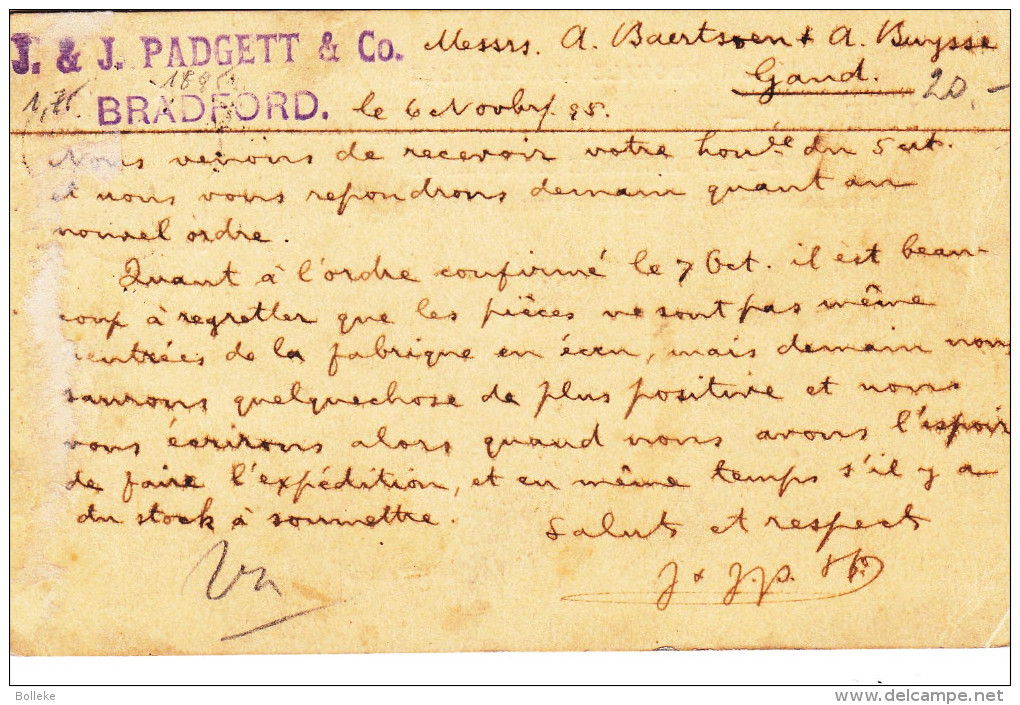 J. & J. PADGETT & Co. Messrs. A. Baertsoen & A. Buysse
Gand. 20.-
1895
BRADFORD. le 6 Novbr/. 95.
Nous venons de recevoir votre honée du 5 crt.
et nous vous repondrons demain quant au
nouvel ordre.
Quant à l'ordre confirmé le 7 Oct. il est beau-
coup à regretter que les pièces ne sont pas même
rentrées de la fabrique en écru, mais demain nous
saurons quelquechose de plus positive et nous
vous écrirons alors quand nous avons l'espoir
de faire l'expédition, et en même temps s'il y a
du stock à soumettre.
Salut et respect
J & J.P. & Co
Vu
Bolleke
www.delcampe.net